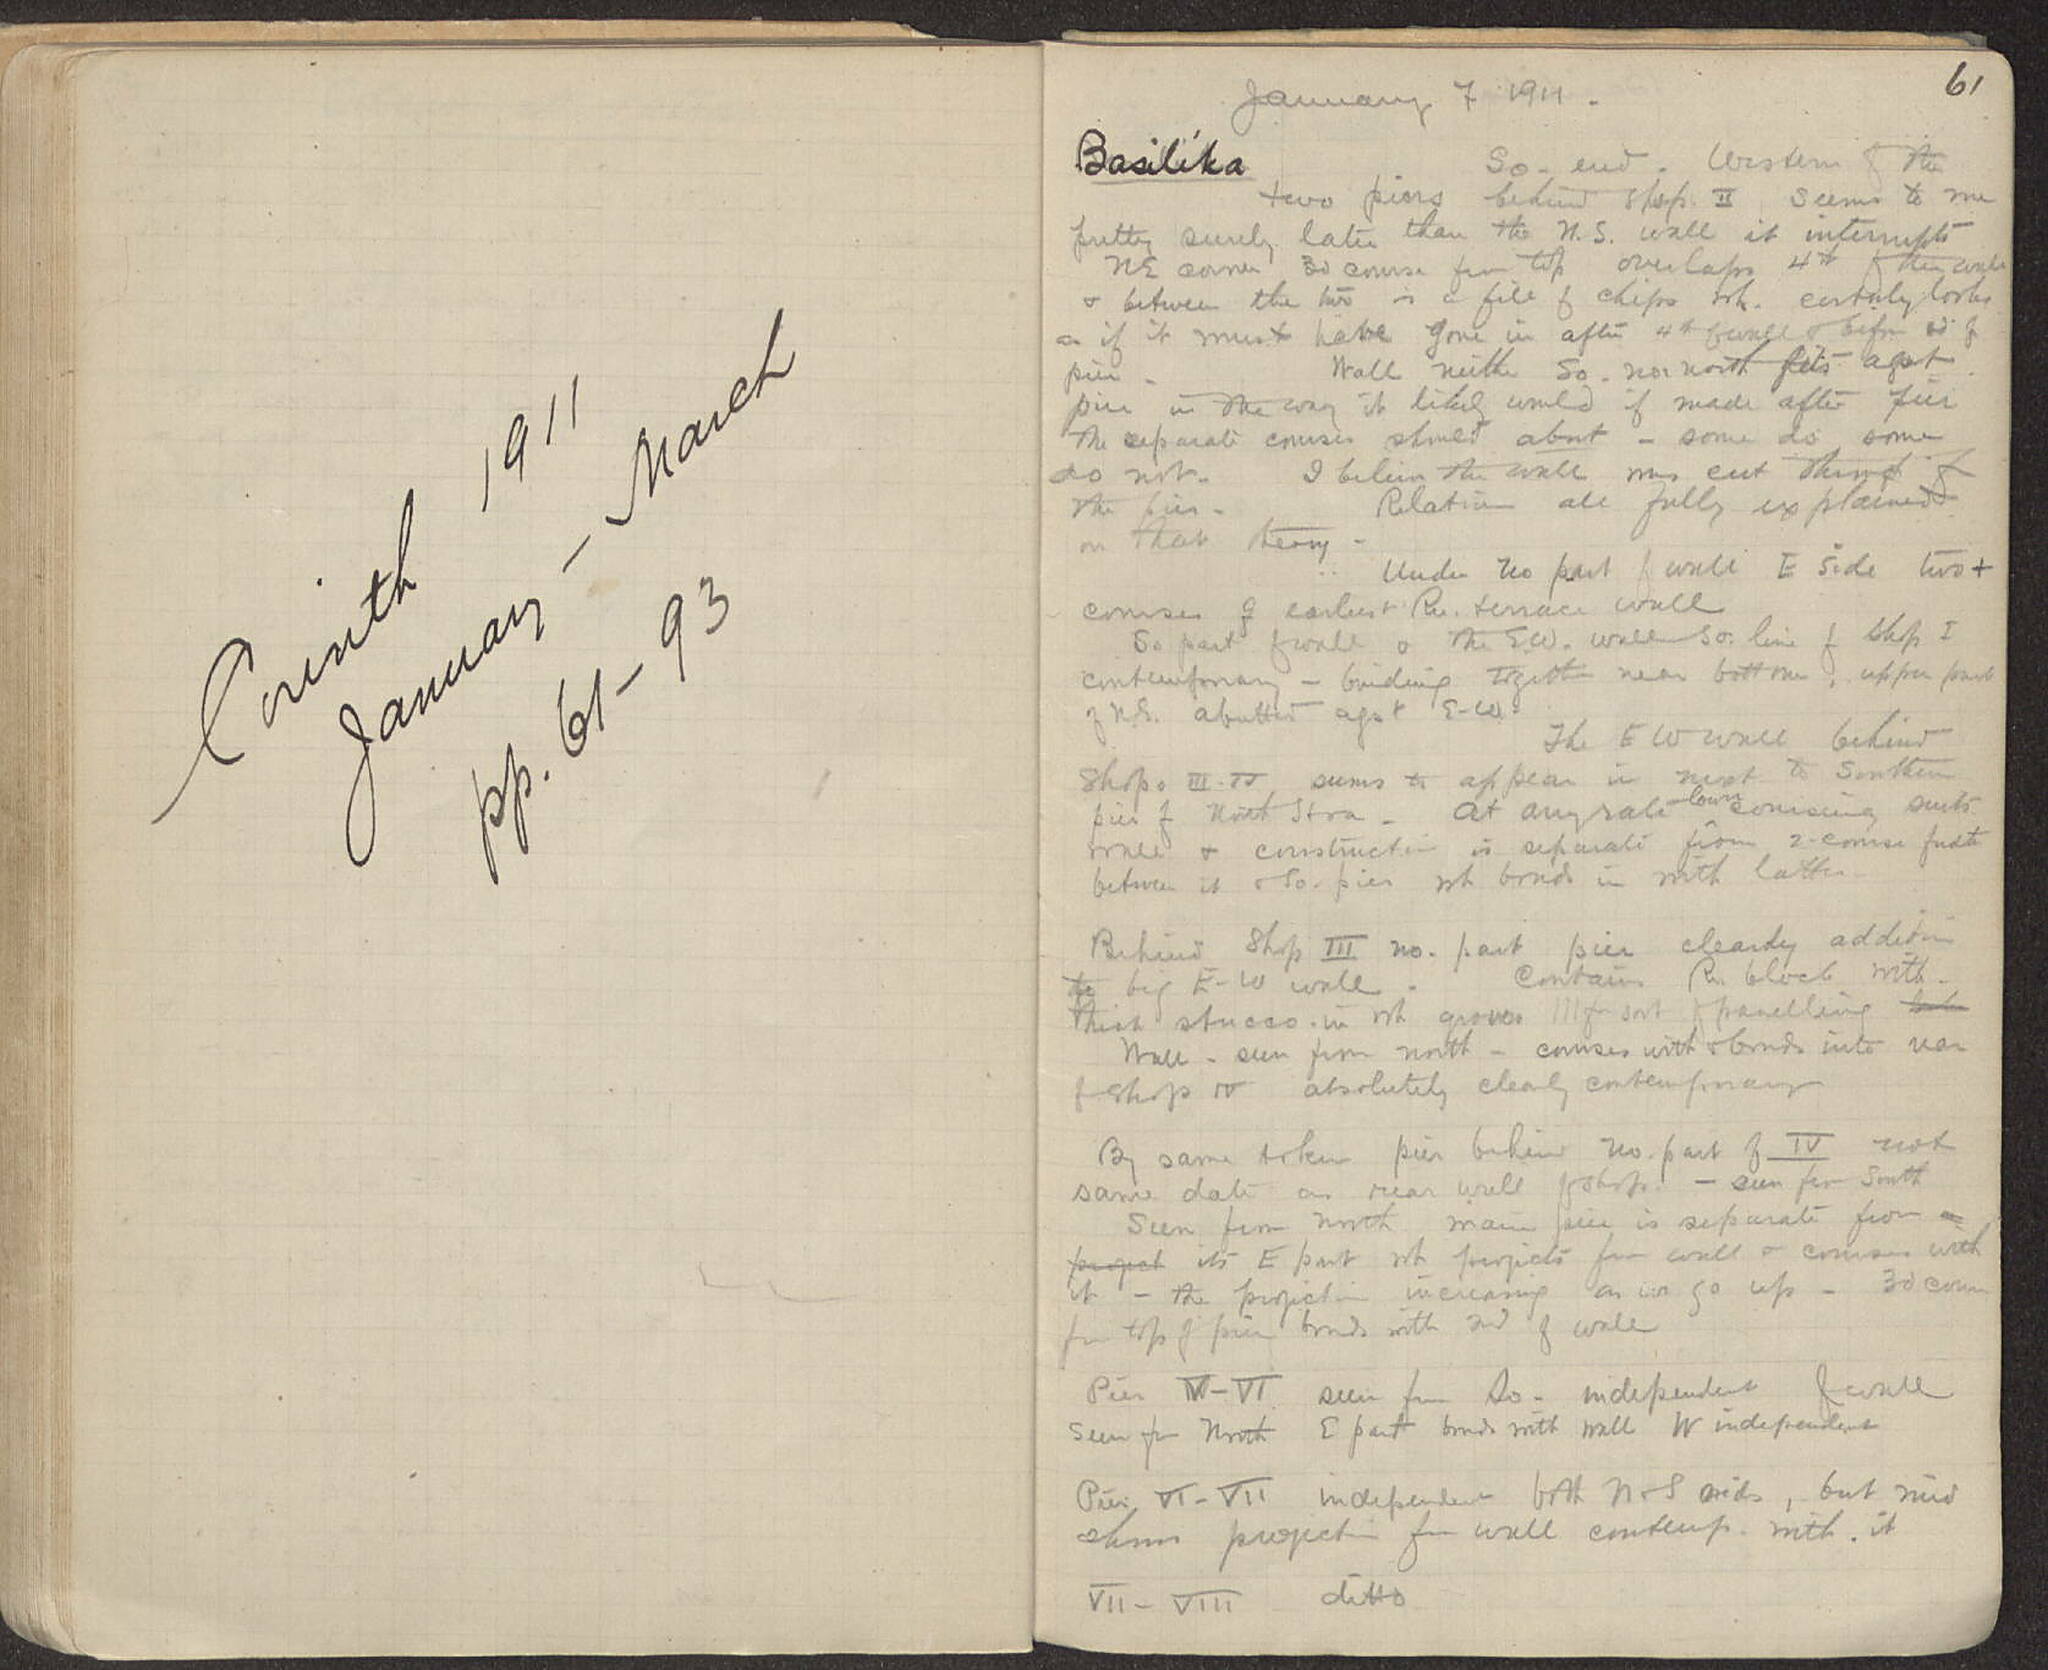 Corinth 1911
January - March
pp. 61-93
61
January 7 1911.
Basilika So. end. Western of the
two piers behind shop II seems to me
pretty surely later than the N.S. wall it interrupts
NE corner 3d course fm top overlaps 4th of the wall
& between the two is a fill of chips wh. certainly looks
as if it must have gone in after 4th of wall & before 3d of
pier - Wall neither So. nor north fits agst
pier in the way it likely would if made after pier
the separate courses should abut - some do some
do not. I believe the wall was cut through for
the pier. Relations all fully explained
on that theory -
Under No part of wall E side two+
courses of earliest Ro. terrace wall
So part of wall & the E.W. wall So. line of Shop I
contemporary - binding together near bottom, upper part
of N.S. abutted agst E-W.
The E W wall behind
Shops III-IV seems to appear in next to Southern
pier of North Stoa - At any rate lower coursing suits
wall & construction is separate from 2-course
between it & So. pier wh bonds in with latter.
Behind Shop III no. part pier clearly addition
to big E-W wall. Contains Ro. block with
thick stucco in wh grooves for sort of panelling
Wall - seen from north - courses with & bonds into rear
of Shop IV absolutely clearly contemporary
By same token pier behind No. part of IV not
same date as rear wall of shop. - seen fm South
Seen from north main pier is separate from
project its E part wh projects fm wall & courses with
it - the projection increasing as we go up - 3d course
fm top of pier bonds with 2nd of wall
Pier -VI seen fm So - independent of wall
Seen fm North E part bonds with wall W independent
Pier VI-VII independent both N & S sides, but mid
shows projection fm wall contemp. with it
VII-VIII ditto